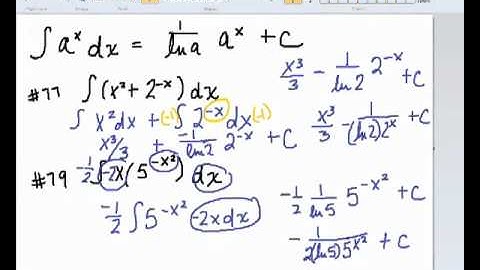 ∫ aˣ dx = 1/ln a aˣ + C
#77 ∫(x² + 2⁻ˣ) dx
∫ x² dx + (-1) ∫ 2⁻ˣ dx (-1)
x³/3 + -1/ln2 2⁻ˣ + C
x³/3 - 1/ln2 2⁻ˣ + C
x³/3 - 1/(ln2)2ˣ + C
#79 -1/2 ∫ -2x (5^(-x²)) dx
-1/2 ∫ 5^(-x²) -2x dx
-1/2 1/ln5 5^(-x²) + C
- 1/2(ln5)5^(x²) + C